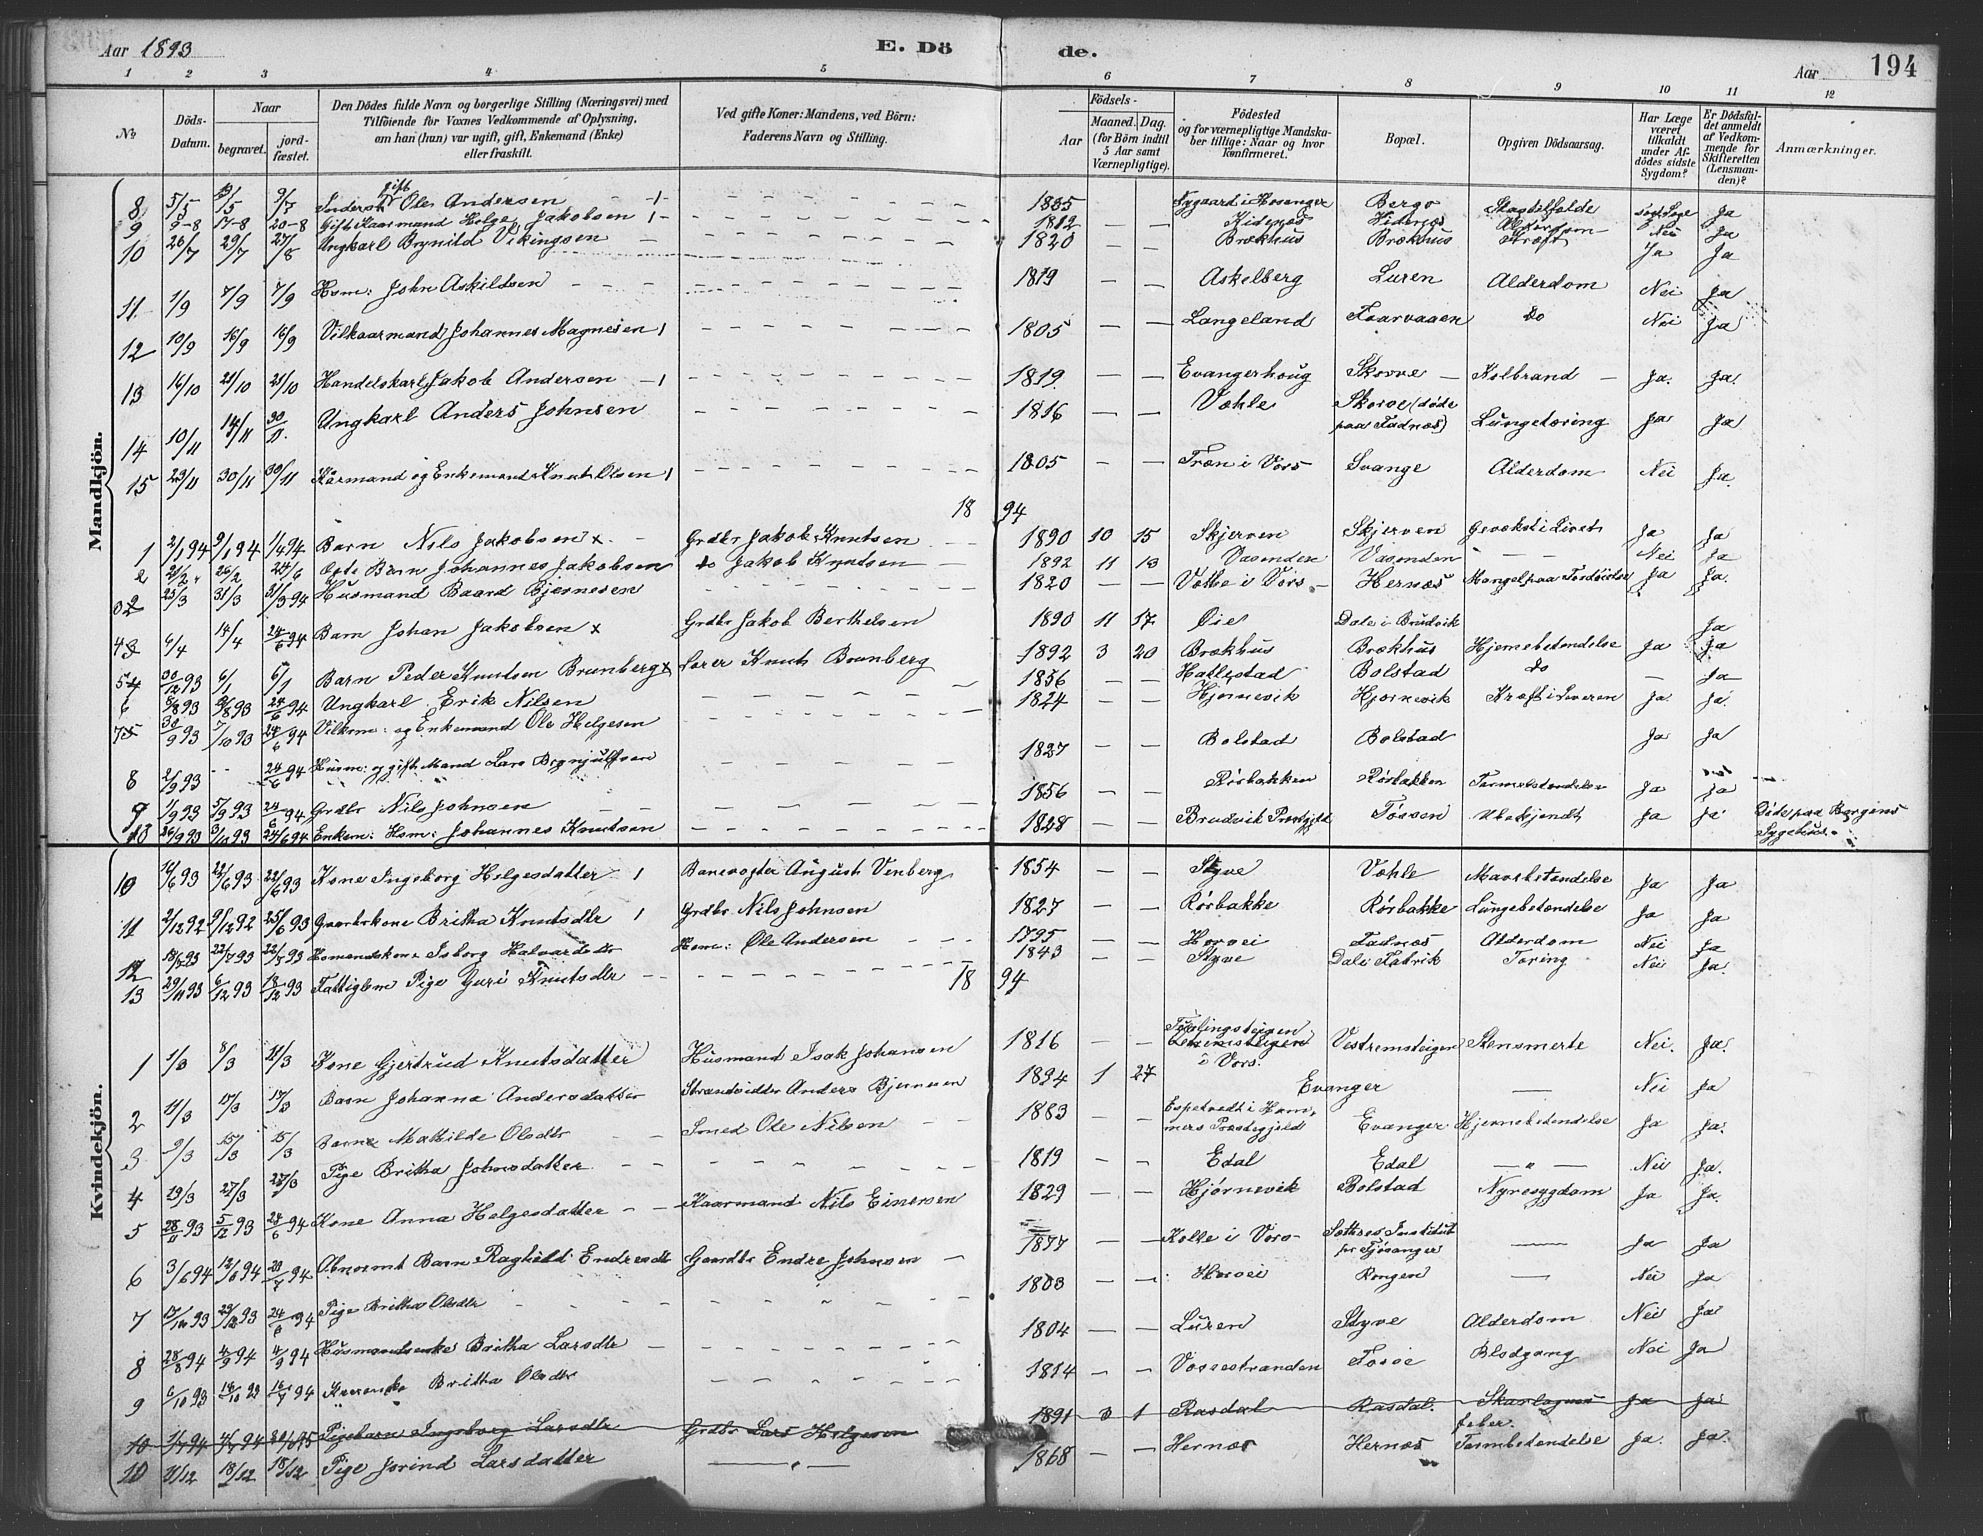 Aar 1893 E. Döde. Aar 194
1 2 3 4 5 6 7 8 9 10 11 12
No
Döds-Datum.
Naar
begravet.
jordfæstet.
Den Dödes fulde Navn og borgerlige Stilling (Næringsvei) med Tilföiende for Voxnes Vedkommende af Oplysning, om han (hun) var ugift, gift, Enkemand (Enke) eller fraskilt.
Ved gifte Koner: Mandens, ved Börn: Faderens Navn og Stilling.
Födsels-
Aar
Maaned. Dag.
(for Börn indtil 5 Aar samt Værnepligtige).
Födested og for værnepligtige Mandskaber tillige: Naar og hvor konfirmeret.
Bopæl.
Opgiven Dödsaarsag.
Har Læge været tilkaldt under Afdödes sidste Sygdom?
Er Dödsfaldet anmeldt af Vedkommende for Skifteretten (Lensmanden)?
Anmærkninger.
Mandkjön.
8 5/5 9/7 gift Ole Andersen 1835 Bergo Ja
9 9-8 17-8 20-8 Gift Kaarmand Helge Jakobsen 1812 Alderdom Nei Ja
10 26/7 29/7 27/8 Ungkarl Brynild Vikingsen 1820 Brækhus Brækhus Kræft Ja Ja
11 1/9 7/9 7/9 Hsm: John Askildsen 1819 Askelberg Luren Alderdom Nei Ja
12 10/9 16/9 16/9 Vilkaarmand Johannes Magnesen 1805 Langeland Faarvaaen Do Nei Ja
13 16/10 21/10 21/10 Handelskarl Jakob Andersen 1819 Evangerhoug Skorve Kolbrand Ja. Ja.
14 10/11 14/11 30/11 Ungkarl Anders Johnsen 1816 Væhle Skorve (døde paa Fadnæs) Lungetæring Ja Ja
15 23/11 30/11 30/11 Kårmand og Enkemand Knut Olsen 1805 Træn i Vors Evange Alderdom Nei Ja.
1894
1 2/1 94 9/1 94 1/4 94 Barn Nils Jakobsen x Grdbr Jakob Knutsen 1890 10 15 Skjerven Skjerven Ja Ja
2 21/2 26/2 24/6 Ægte Barn Johannes Jakobsen do Jakob Knutsen 1892 11 13 Vasenden Vasenden Nei Ja
25/3 31/3 31/3 94 Husmand Baard Bjørnesen 1820 Væthe i Vors Hernæs Mangel paa Fordøielse Ja Ja.
4 6/4 14/4 24/6 94 Barn Johan Jakobsen x Grdbr Jakob Berthelsen 1890 11 17 Øie Dale i Brudvik Ja
5 30/12 93 6/1 6/1 Barn Peder Knutsen Brunberg x Lærer Knut Brunberg 1892 3 20 Brækhus Brækhus Hjernebetændelse Ja Ja
6 5/8 93 8/8 93 24/6 94 Ungkarl Erik Nilsen 1856 Hatlestad Bolstad Do Ja
7 30/9 93 7/10 93 24/6 94 Vilkm: og Enkemand Ole Helgesen 1824 Hjørnevik Hjørnevik Kræft i Leveren Ja. Ja.
8 2/9 93 24/6 94 Husm: og gift Mand Lars Brynjulfsen 1827 Bolstad Bolstad Ja Ja
9 1/9 93 5/9 93 24/6 94 Grdbr Nils Johnsen 1856 Rørbakken Rørbakken Tarmbetændelse Ja Ja
10 26/9 93 3/10 93 24/6 94 Enkem: Hsm: Johannes Knutsen 1828 Brudvik Præstgjeld Fossen Ubekjendt Ja Ja Døde paa Bergens Sygehus.
Kvindekjön.
10 16/6 93 22/6 93 22/6 93 Kone Ingeborg Helgesdatter Banevogter August Venberg 1854 Styve Væhle Mavebetændelse Ja Ja
11 2/12 92 9/12 92 25/6 93 Gaardbrkone Britha Knutsdtr Grdbr Nils Johnsen 1827 Rørbakke Rørbakke Lungebetændelse Ja Ja
12 22/7 93 22/7 93 Husmandskone Isborg Halvardsdtr Hsm: Ole Andersen 1795 Horvei Fadnæs Alderdom Nei Ja
13 29/11 93 6/12 93 18/12 93 Fattiglem Pige Guri Knutsdtr 1843 Styve Dale Fabrik Tæring Nei Ja.
1894
1 1/3 8/3 11/3 Kone Gjertrud Knutsdatter Husmand Isak Johansen 1816 i Vors. Vestremsteigen Stensmerte Nei. Ja.
2 11/3 17/3 17/3 Barn Johanna Andersdatter Strandsidder Anders Bjørnsen 1894 1 27 Evanger Nei Ja
3 9/3 15/3 15/3 Barn Mathilde Olsdtr Smed Ole Nilsen 1883 Espetvedt i Hammers Præstegjeld Evanger Hjernebetændelse Ja Ja.
4 19/3 27/3 27/3 Pige Britha Johnsdatter 1819 Edal Edal Nei Ja.
5 28/11 93 5/12 93 24/6 94 Kone Anna Helgesdatter Kaarmand Nils Einersen 1829 Hjørnevik Bolstad Nyresygdom Ja Ja.
6 3/6 94 12/6 94 20/7 94 Abnormt Barn Raghild Endresdtr Gaardbr Endre Johnsen 1877 Kolle i Vors Sothres Institut pr Fjøsanger Ja Ja
7 17/12 93 29/12 93 24/6 94 Pige Britha Olsdtr 1803 Horvei Rongen Nei Ja
8 28/8 94 4/9 94 4/9 94 Husmandsenke Britha Larsdtr 1804 Luren Styve Alderdom Nei Ja
9 6/10 93 14/10 93 16/7 94 Kaarenke Britha Olsdtr 1814 Vossestranden Fosse Blodgang Nei Ja
10 1/7 94 Pigebarn Ingeborg Larsdtr Grdbr Lars Helgesen 1891 3 1 Rasdal Rasdal. Skarlagensfeber. Ja Ja
10 11/12 18/12 18/12 Pige Jorind Larsdatter 1868 Hernæs Hernæs Tarmbetændelse Ja. Ja.